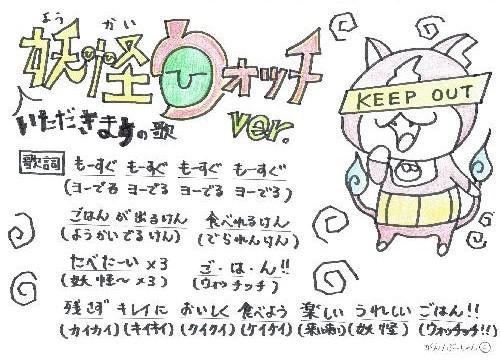 よう かい
妖怪ウォッチ
いただきますの歌 ver.
KEEP OUT
歌詞 もーすぐ もーすぐ もーすぐ もーすぐ
(ヨーでる ヨーでる ヨーでる ヨーでる)
ごはんが出るけん 食べれるけん
(ようかいでるけん) (でられんけん)
たべたーい×3 ご・は・ん!!
(妖怪〜×3) (ウォッチッチ)
残さず キレイに おいしく 食べよう 楽しい うれしい ごはん!!
(カイカイ) (キイキイ) (クイクイ) (ケイケイ) (妖怪) (ウォッチッチ!!)